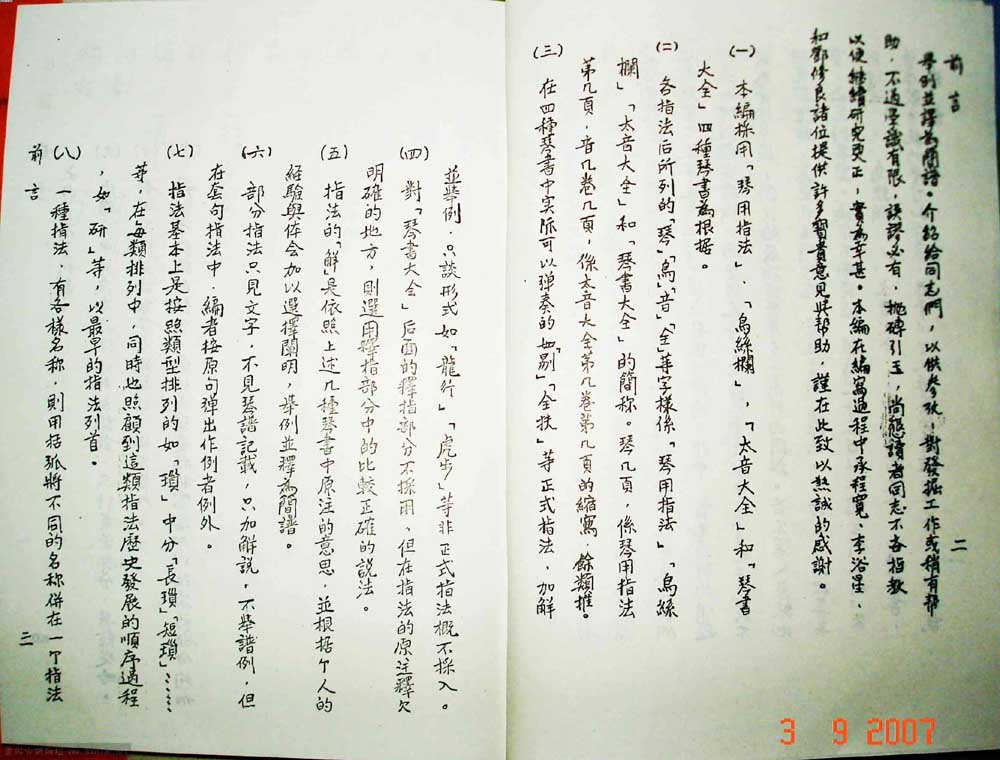 前言
二
舉例並譯為簡譜。介紹給同志們，以供參攷，對發掘工作或稍有幫
助，不過學識有限，誤謬必有，抛磚引玉，尚懇讀者同志不吝指教
以便継續研究更正，實為幸甚。本編在編寫過程中承程寬、李浴星、
和鄧修良諸位提供許多寶貴意見與帮助，謹在此致以熱誠的感謝。
(一) 本編採用「琴用指法」、「烏絲欄」，「太音大全」和「琴書
大全」四種琴書為根据。
(二) 各指法后所列的「琴」「烏」「音」「全」等字樣係「琴用指法」「烏絲
欄」「太音大全」和「琴書大全」的簡称。琴几頁，係琴用指法
第几頁，音几卷几頁，係太音大全第几卷第几頁的縮寫，餘類推。
(三) 在四種琴書中实际可以弹奏的如「剔」「全扶」等正式指法，加解
並舉例，只談形式如「龍行」「虎步」等非正式指法概不採入。
(四) 對「琴書大全」后面的釋指部分不採用、但在指法的原注釋欠
明確的地方，則選用釋指部分中的比較正確的說法。
(五) 指法的「解」是依照上述几種琴書中原注的意思，並根据个人的
経驗與体会加以選擇闡明，舉例並釋為簡譜。
(六) 部分指法只見文字，不見琴譜記載，只加解説，不舉譜例，但
在套句指法中，編者按原句弹出作例者例外。
(七) 指法基本上是按照類型排列的如「瑣」中分「長瑣」「短瑣」……
等，在每類排列中，同時也照顧到這類指法歷史發展的順序過程
，如「研」等，以最早的指法列首。
(八) 一種指法，有各樣名称，則用括弧將不同的名称併在一个指法
前言
三
3 9 2007